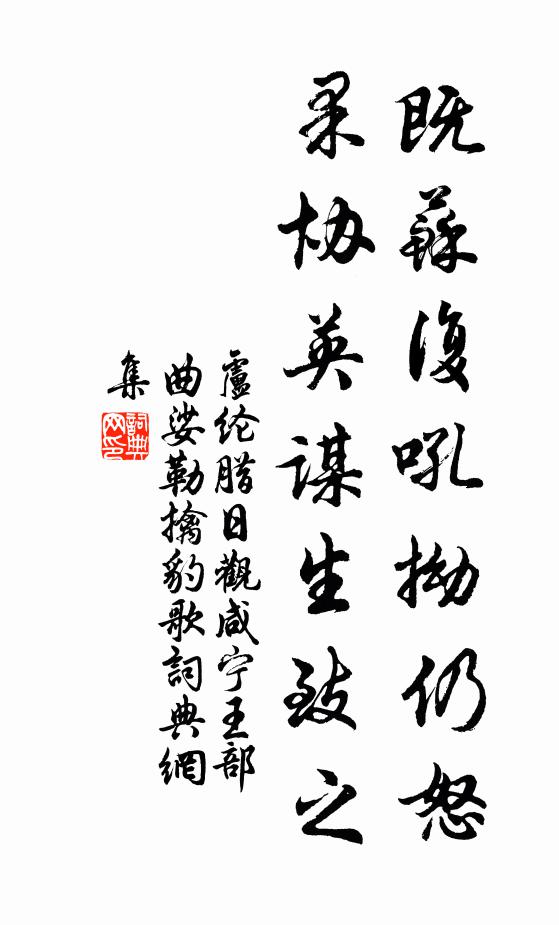 既蘇復吼拗仍怒
果协英谋生致之
盧纶腊日觀咸宁王部
曲娑勒擒豹歌詞典網
集
詞典網印